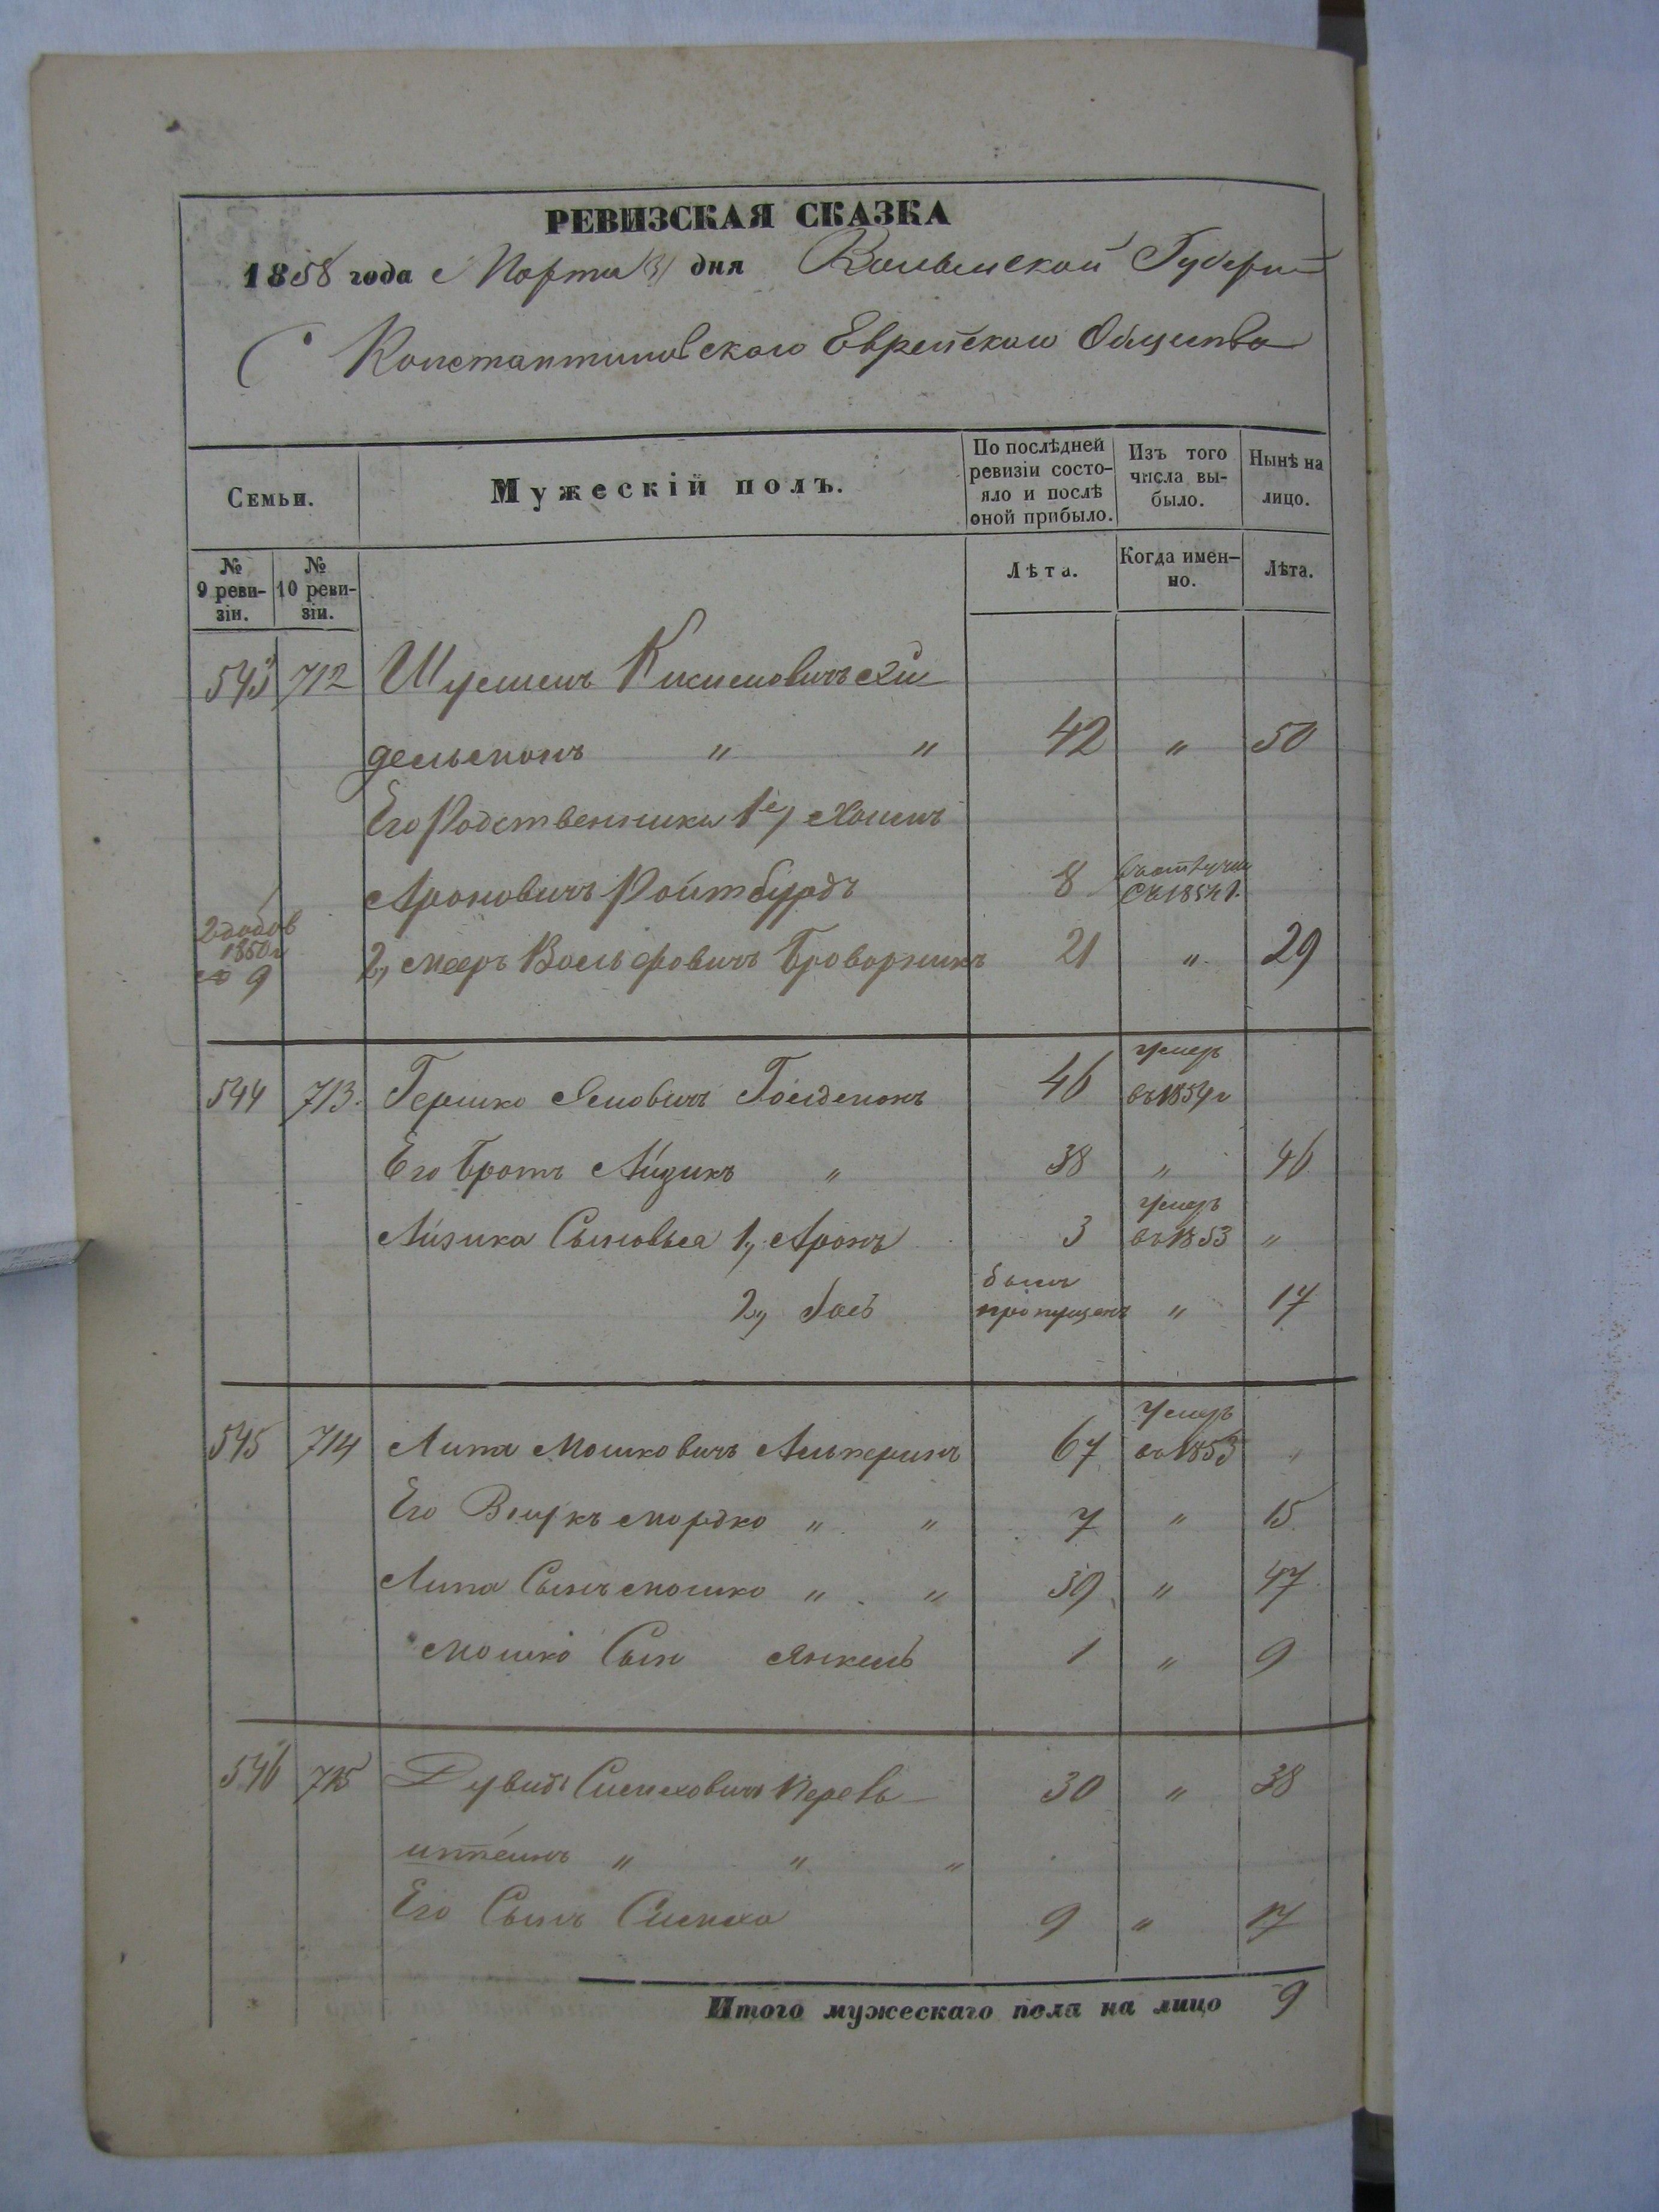 РЕВИЗСКАЯ СКАЗКА
1858 года Марта 31 дня Волынской Губернии
Константиновского Еврейского Общества
Семьи.
Мужескій полъ.
По послѣдней ревизіи состо-яло и послѣ оной прибыло.
Изъ того числа вы-было.
Нынѣ на лицо.
№ 9 реви-зіи.
№ 10 реви-зіи.
Лѣта.
Когда имен-но.
Лѣта.
543 712
дельманъ " " 42 " 50
Его Родственники 1е/ Хаимъ
Ароновичъ Ройтбурдъ 8 Въ отлучке Съ 1854 г.
1850 г 9 2,, Мееръ Вольфовичъ Броварникъ 21 " 29
544 713. Гершко Голдманъ 46 умеръ въ 1854 г
Его Братъ Айзикъ " 38 " 46
Айзика Сыновья 1,, Аронъ 3 умеръ въ 1853 "
2,, былъ пропущенъ " 17
545 714 Липа Мошковичъ Альперинъ 67 умеръ въ 1853 "
Его Внукъ Мордко " " 7 " 15
Липа Сынъ Мошко " " 39 " 47
Мошко Сын Янкель 1 " 9
546 715 Дувидъ Симховичъ Перель- 30 " 38
штейнъ " " "
Его Сынъ Симха 9 " 17
Итого мужескаго пола на лицо 9